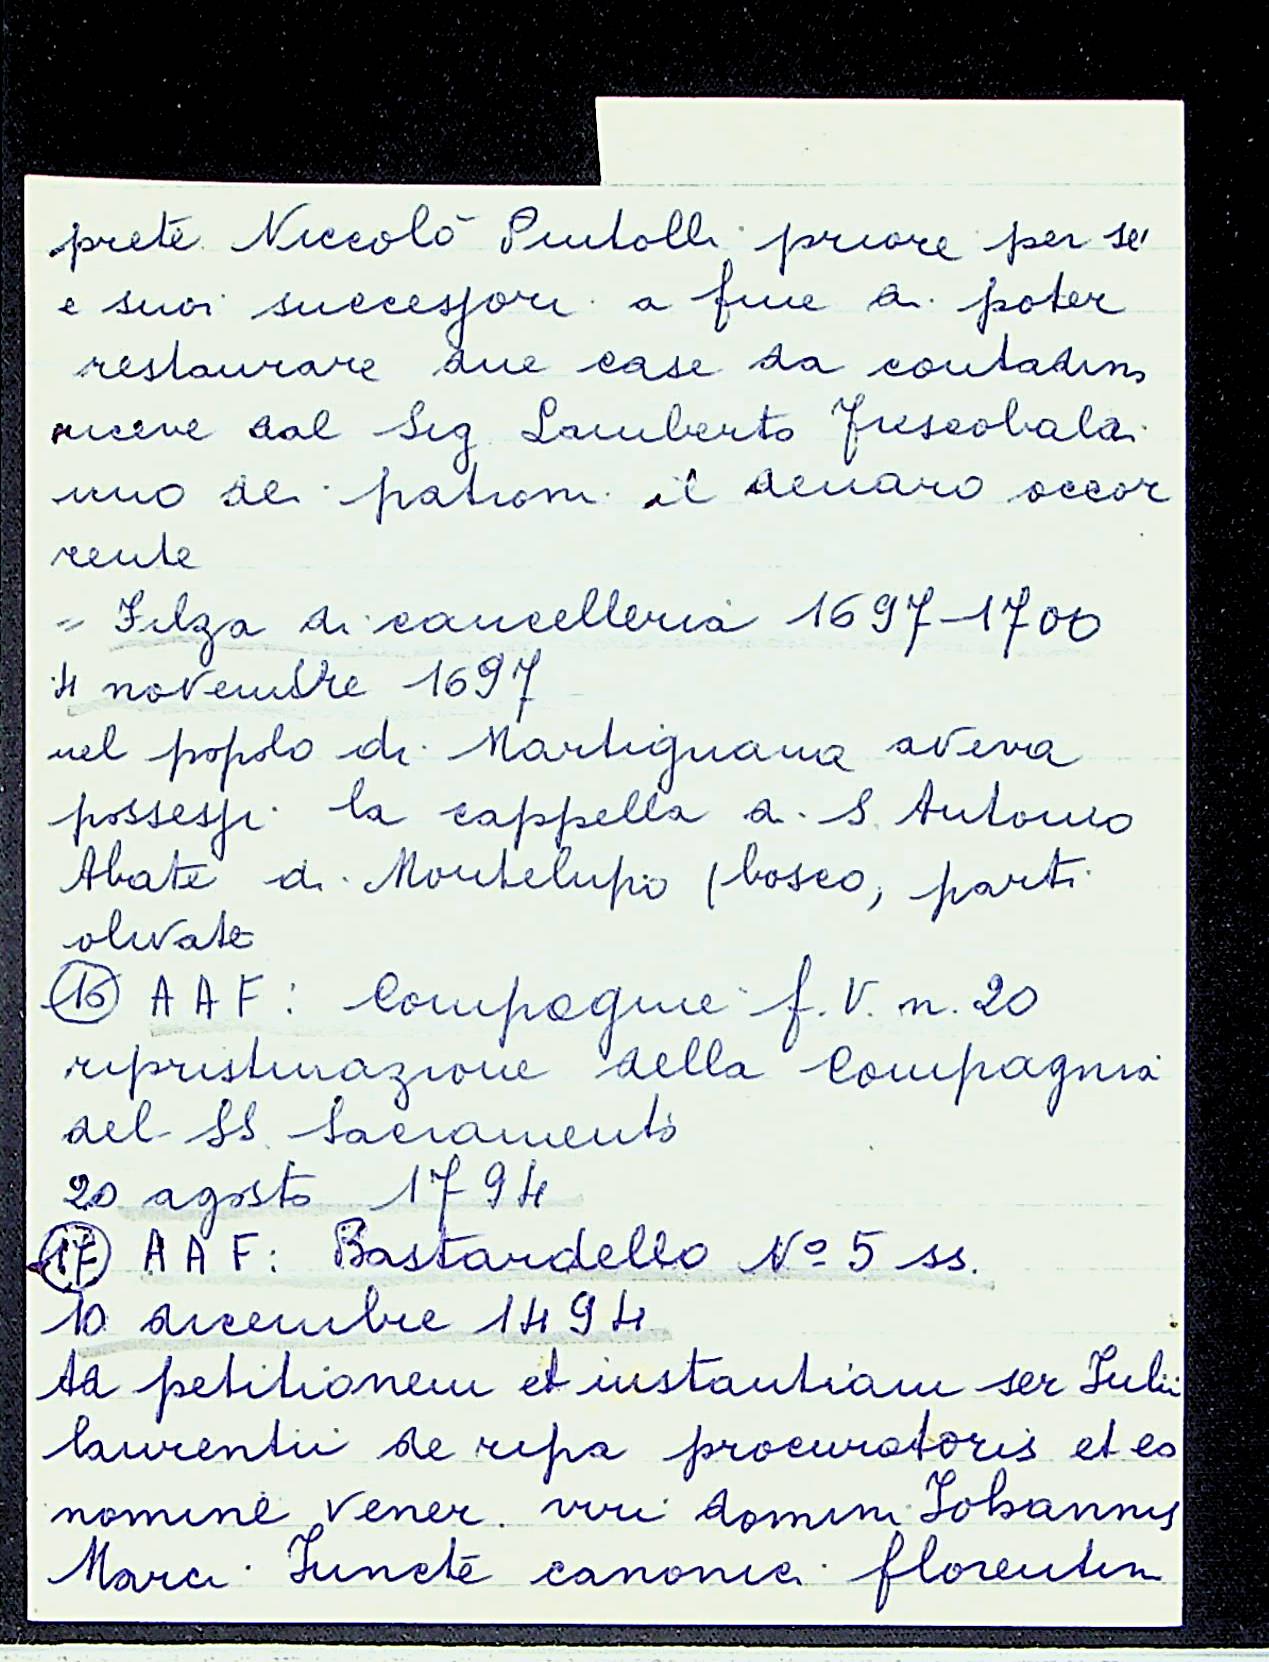 prete Niccolò Pintolli priore per sé
e suoi successori a fine di poter
restaurare due case da contadini
riceve dal Sig Lamberto Frescobaldi
uno dei patroni il denaro occor
rente
= Filza di cancelleria 1697-1700
4 novembre 1697
nel popolo di Martignana aveva
possessi la cappella di S. Antonio
Abate di Montelupo (bosco, parti
olivate
16 AAF: Compagnie f. V. n. 20
ripristinazione della Compagnia
del SS. Sacramento
20 agosto 1794
17 AAF: Bastardello Nº 5 ss.
10 dicembre 1494
Ad petitionem et instantiam ser Iulii
laurentii de ripa procuratoris et eo
nomine vener. viri domini Iohannis
Marci Iuncte canonici florentin